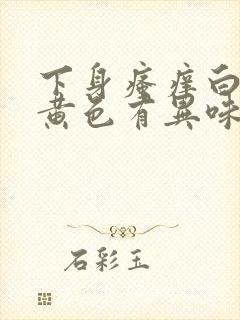 下身瘙痒白
黄色有異味
石彩玉